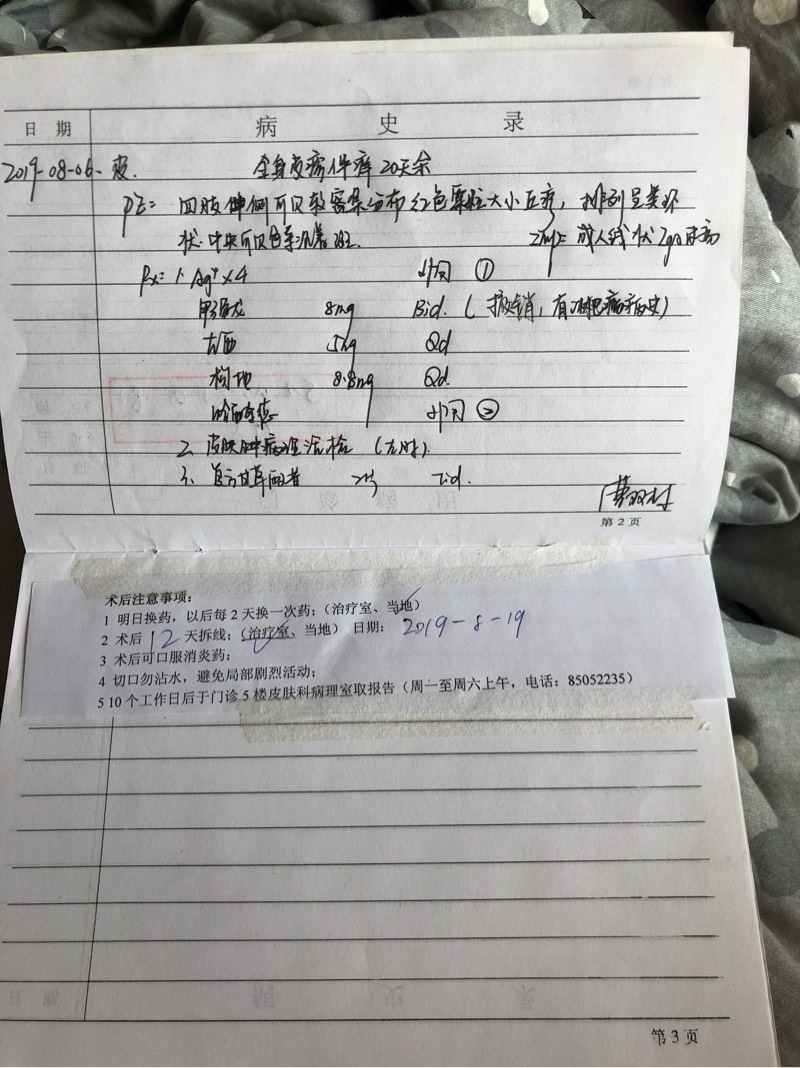 日 期 病 史 录
2019-08-06. 皮. 全身皮疹伴痒20天余
PE= 四肢伸侧可见较密集分布红色粟粒大小丘疹, 排列呈类环
状. 中央可见色素沉着斑. Imp= 成人线状IgA
Rx= 1. ×4 外用 ①
甲强龙 8mg Bid. ( 撤销, 有
5mg Qd
枸地 8.8mg Qd.
外用 ②
2. 皮肤肿病理活检 (左肘).
3. 复方甘草 Tid.
第 2 页
术后注意事项:
1 明日换药, 以后每 2 天换一次药; (治疗室、当地)
2 术后 12 天拆线; (治疗室、当地) 日期: 2019-8-19
3 术后可口服消炎药;
4 切口勿沾水, 避免局部剧烈活动;
5 10 个工作日后于门诊 5 楼皮肤科病理室取报告 (周一至周六上午, 电话: 85052235)
第 3 页